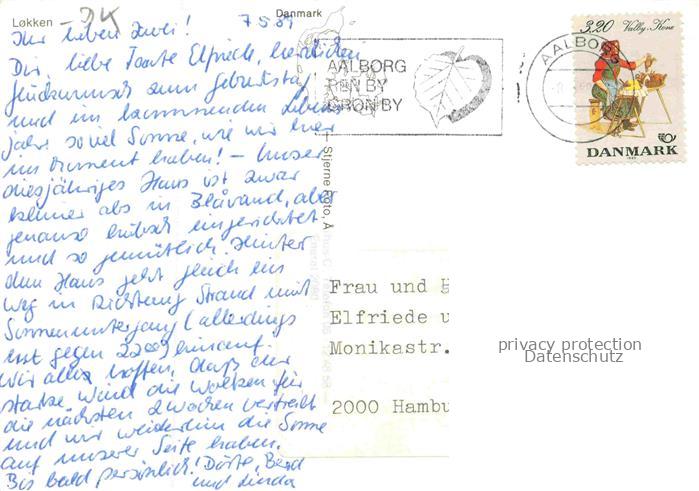 Løkken – DK
Danmark
7.5.89
Ihr lieben Zwei!
Dir, liebe Tante Elfriede, herzlichen
Glückwunsch zum Geburtstag
und im kommenden Lebens-
jahr soviel Sonne, wie wir hier
im Moment haben! – Unser
diesjähriges Haus ist zwar
kleiner als in Blåvand, aber
genauso hübsch eingerichtet
und so gemütlich. Hinter
dem Haus geht gleich ein
Weg in Richtung Strand mit
Sonnenuntergang (allerdings
erst gegen 22.00) hinauf.
Wir alle hoffen, daß der
starke Wind die Wolken für
die nächsten 2 Wochen vertreibt
und wir weiterhin die Sonne
auf unserer Seite haben.
Bis bald persönlich! Dörte, Bernd
und Linda
AALBORG
REN BY
GRØN BY
AALBORG
3.20 Valby-Kone
DANMARK
Stjerne Foto, A
Frau und H
Elfriede u
Monikastr.
2000 Hambu
privacy protection
Datenschutz